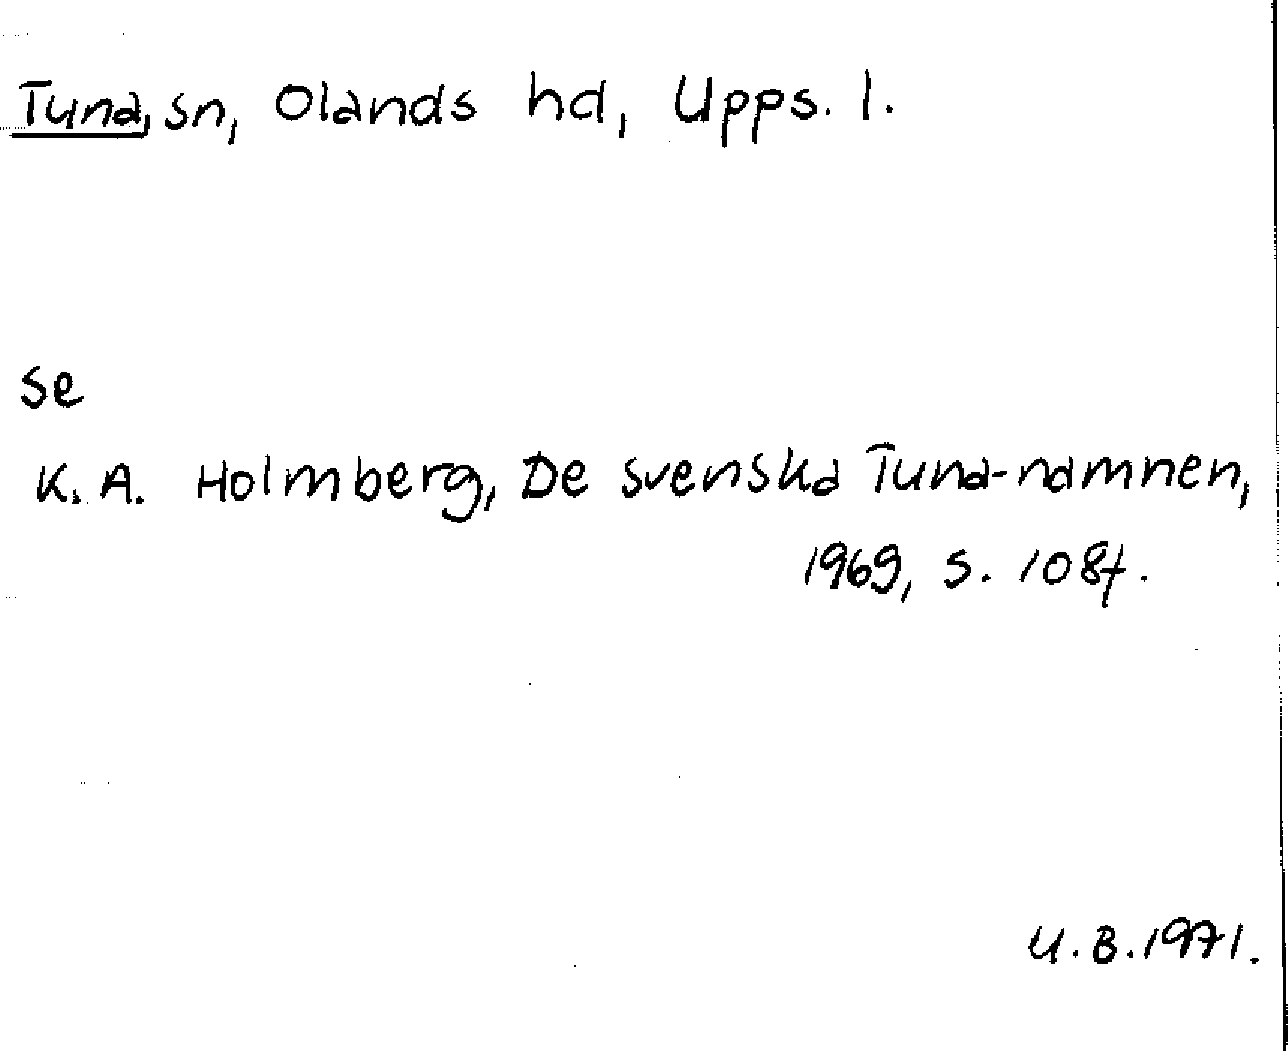 Tuna, sn, Olands hd, Upps. l.
se
K. A. Holmberg, De svenska Tuna-namnen,
1969, s. 108f.
U. B. 1971.